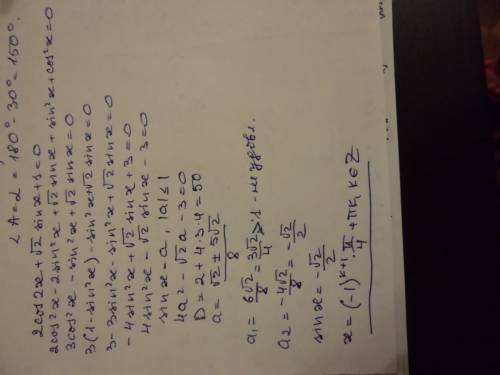 ∠A=α = 180°-30°=150°.
2cos2x+√2 sinx+1=0
2cos²x-2sin²x+√2 sinx+sin²x+cos²x=0
3cos²x-sin²x+√2 sinx=0
3(1-sin²x)-sin²x+√2 sinx=0
3-3sin²x-sin²x+√2 sinx=0
-4sin²x+√2 sinx+3=0
4sin²x-√2 sinx-3=0
sinx=a, |a|≤1
4a²-√2a-3=0
D=2+4·3·4=50
a=(√2±5√2)/8
a₁=6√2/8=3√2/4>1-не удовл.
a₂=-4√2/8=-√2/2
sinx=-√2/2
x=(-1)ᵏ⁺¹·π/4+πk, k∈Z